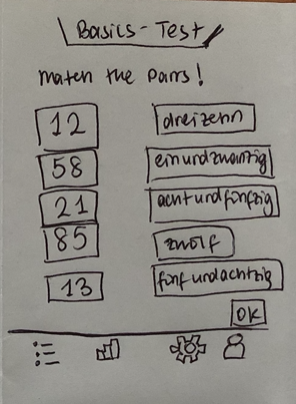 Basics-Test
Match the Pairs!
12 dreizehn
58 einundzwanzig
21 achtundfünfzig
85 zwölf
13 fünfundachtzig
OK